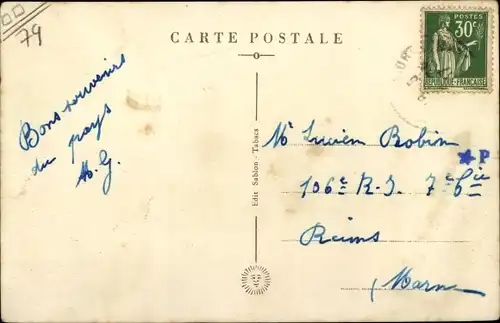 79
CARTE POSTALE
POSTES
30c
REPUBLIQUE-FRANÇAISE
Bons souvenirs
du pays
M.G.
Edit Sablon - Tabacs
Mr Lucien Robin
★ P
106e R.I. 7e Cie
Reims
(Marne